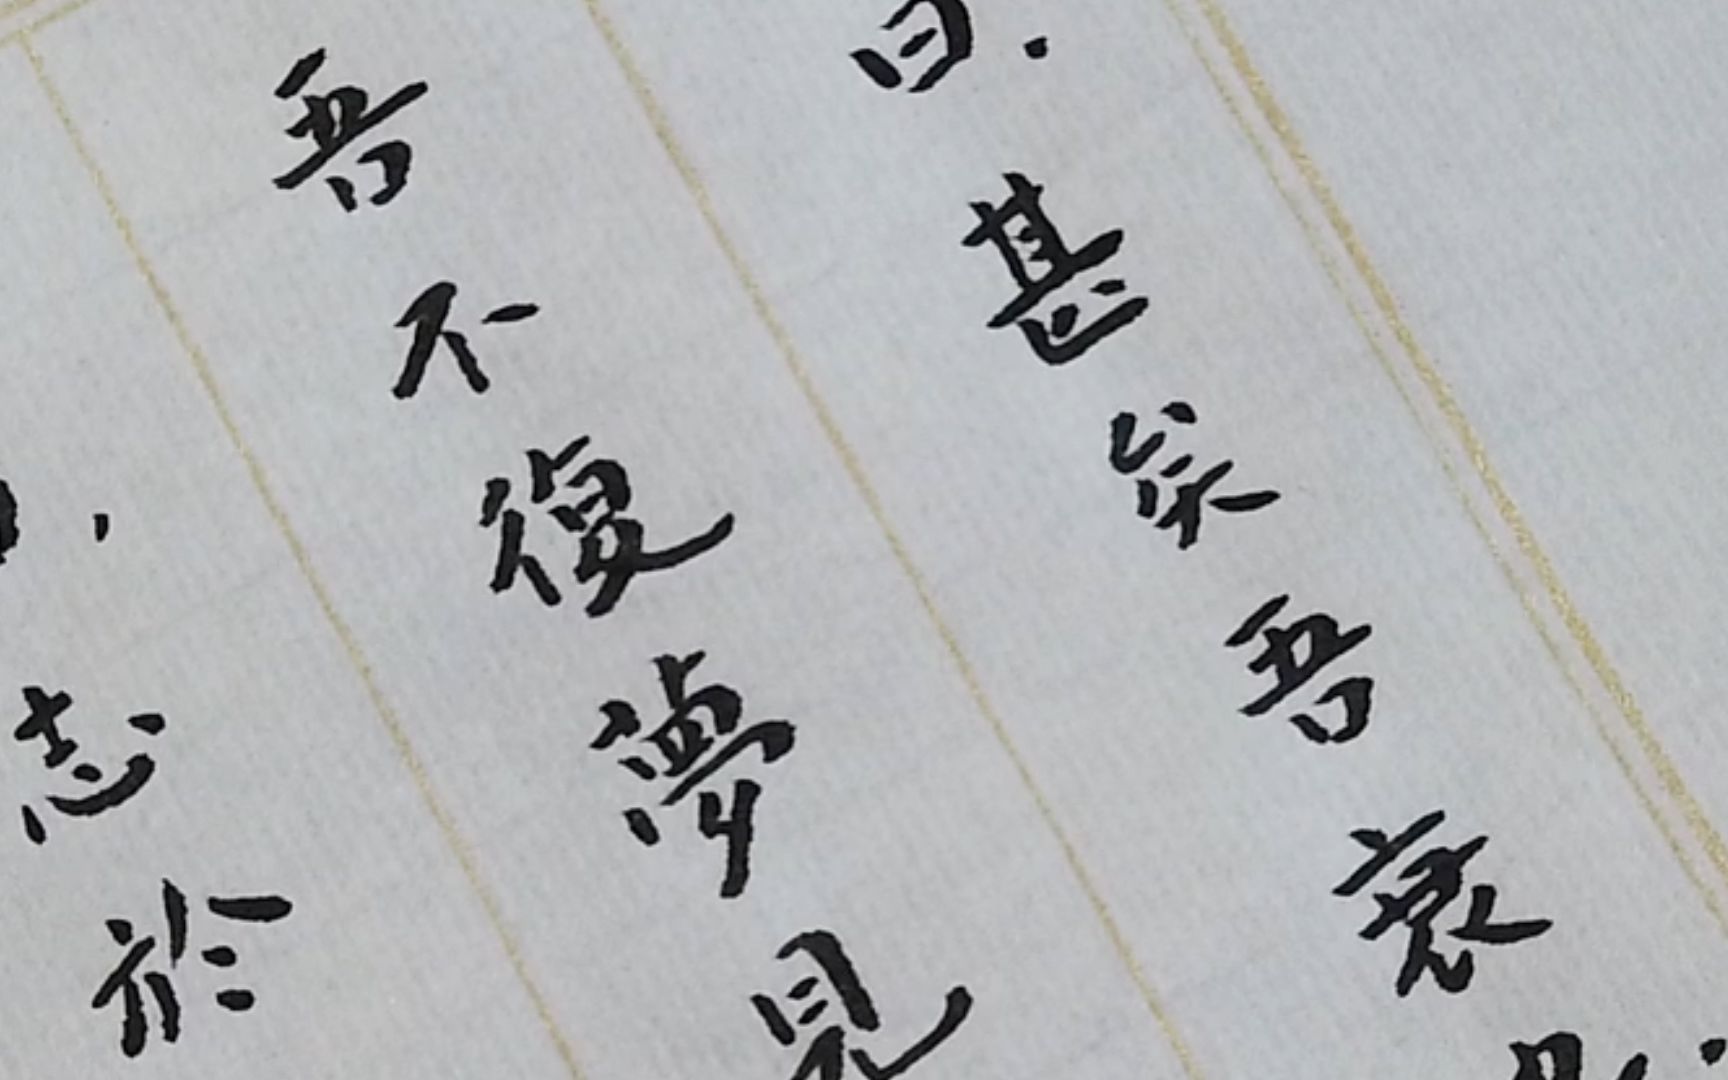 曰.甚矣吾衰也.
吾不復夢見
曰.志於